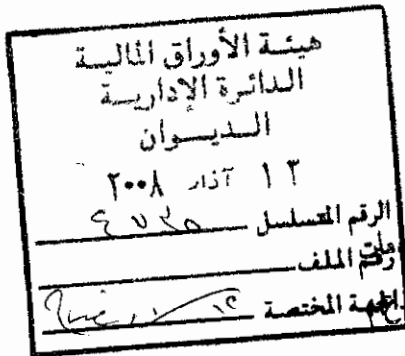 هيئة الأوراق المالية
الدائرة الإدارية
الديوان
١٣ آذار ٢٠٠٨
الرقم المتسلسل
رقم الملف
الجهة المختصة